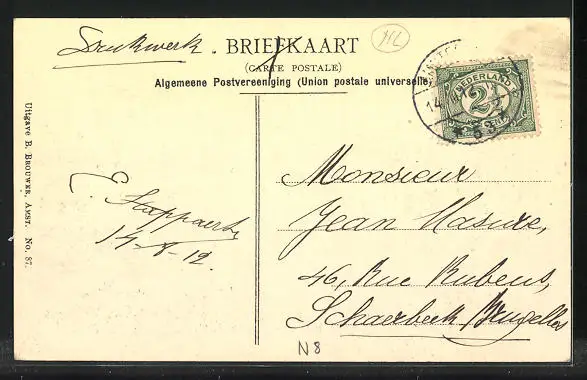 Drukwerk. BRIEFKAART
(CARTE POSTALE)
Algemeene Postvereeniging (Union postale universelle)
NEDERLAND
2½
CENT
14
12
53
Uitgave B. BROUWER, AMST. No. 87.
E. Stappaerts
14-8-12.
Monsieur
Jean Masure,
46, Rue Rubens,
Schaerbeek Bruxelles
N8